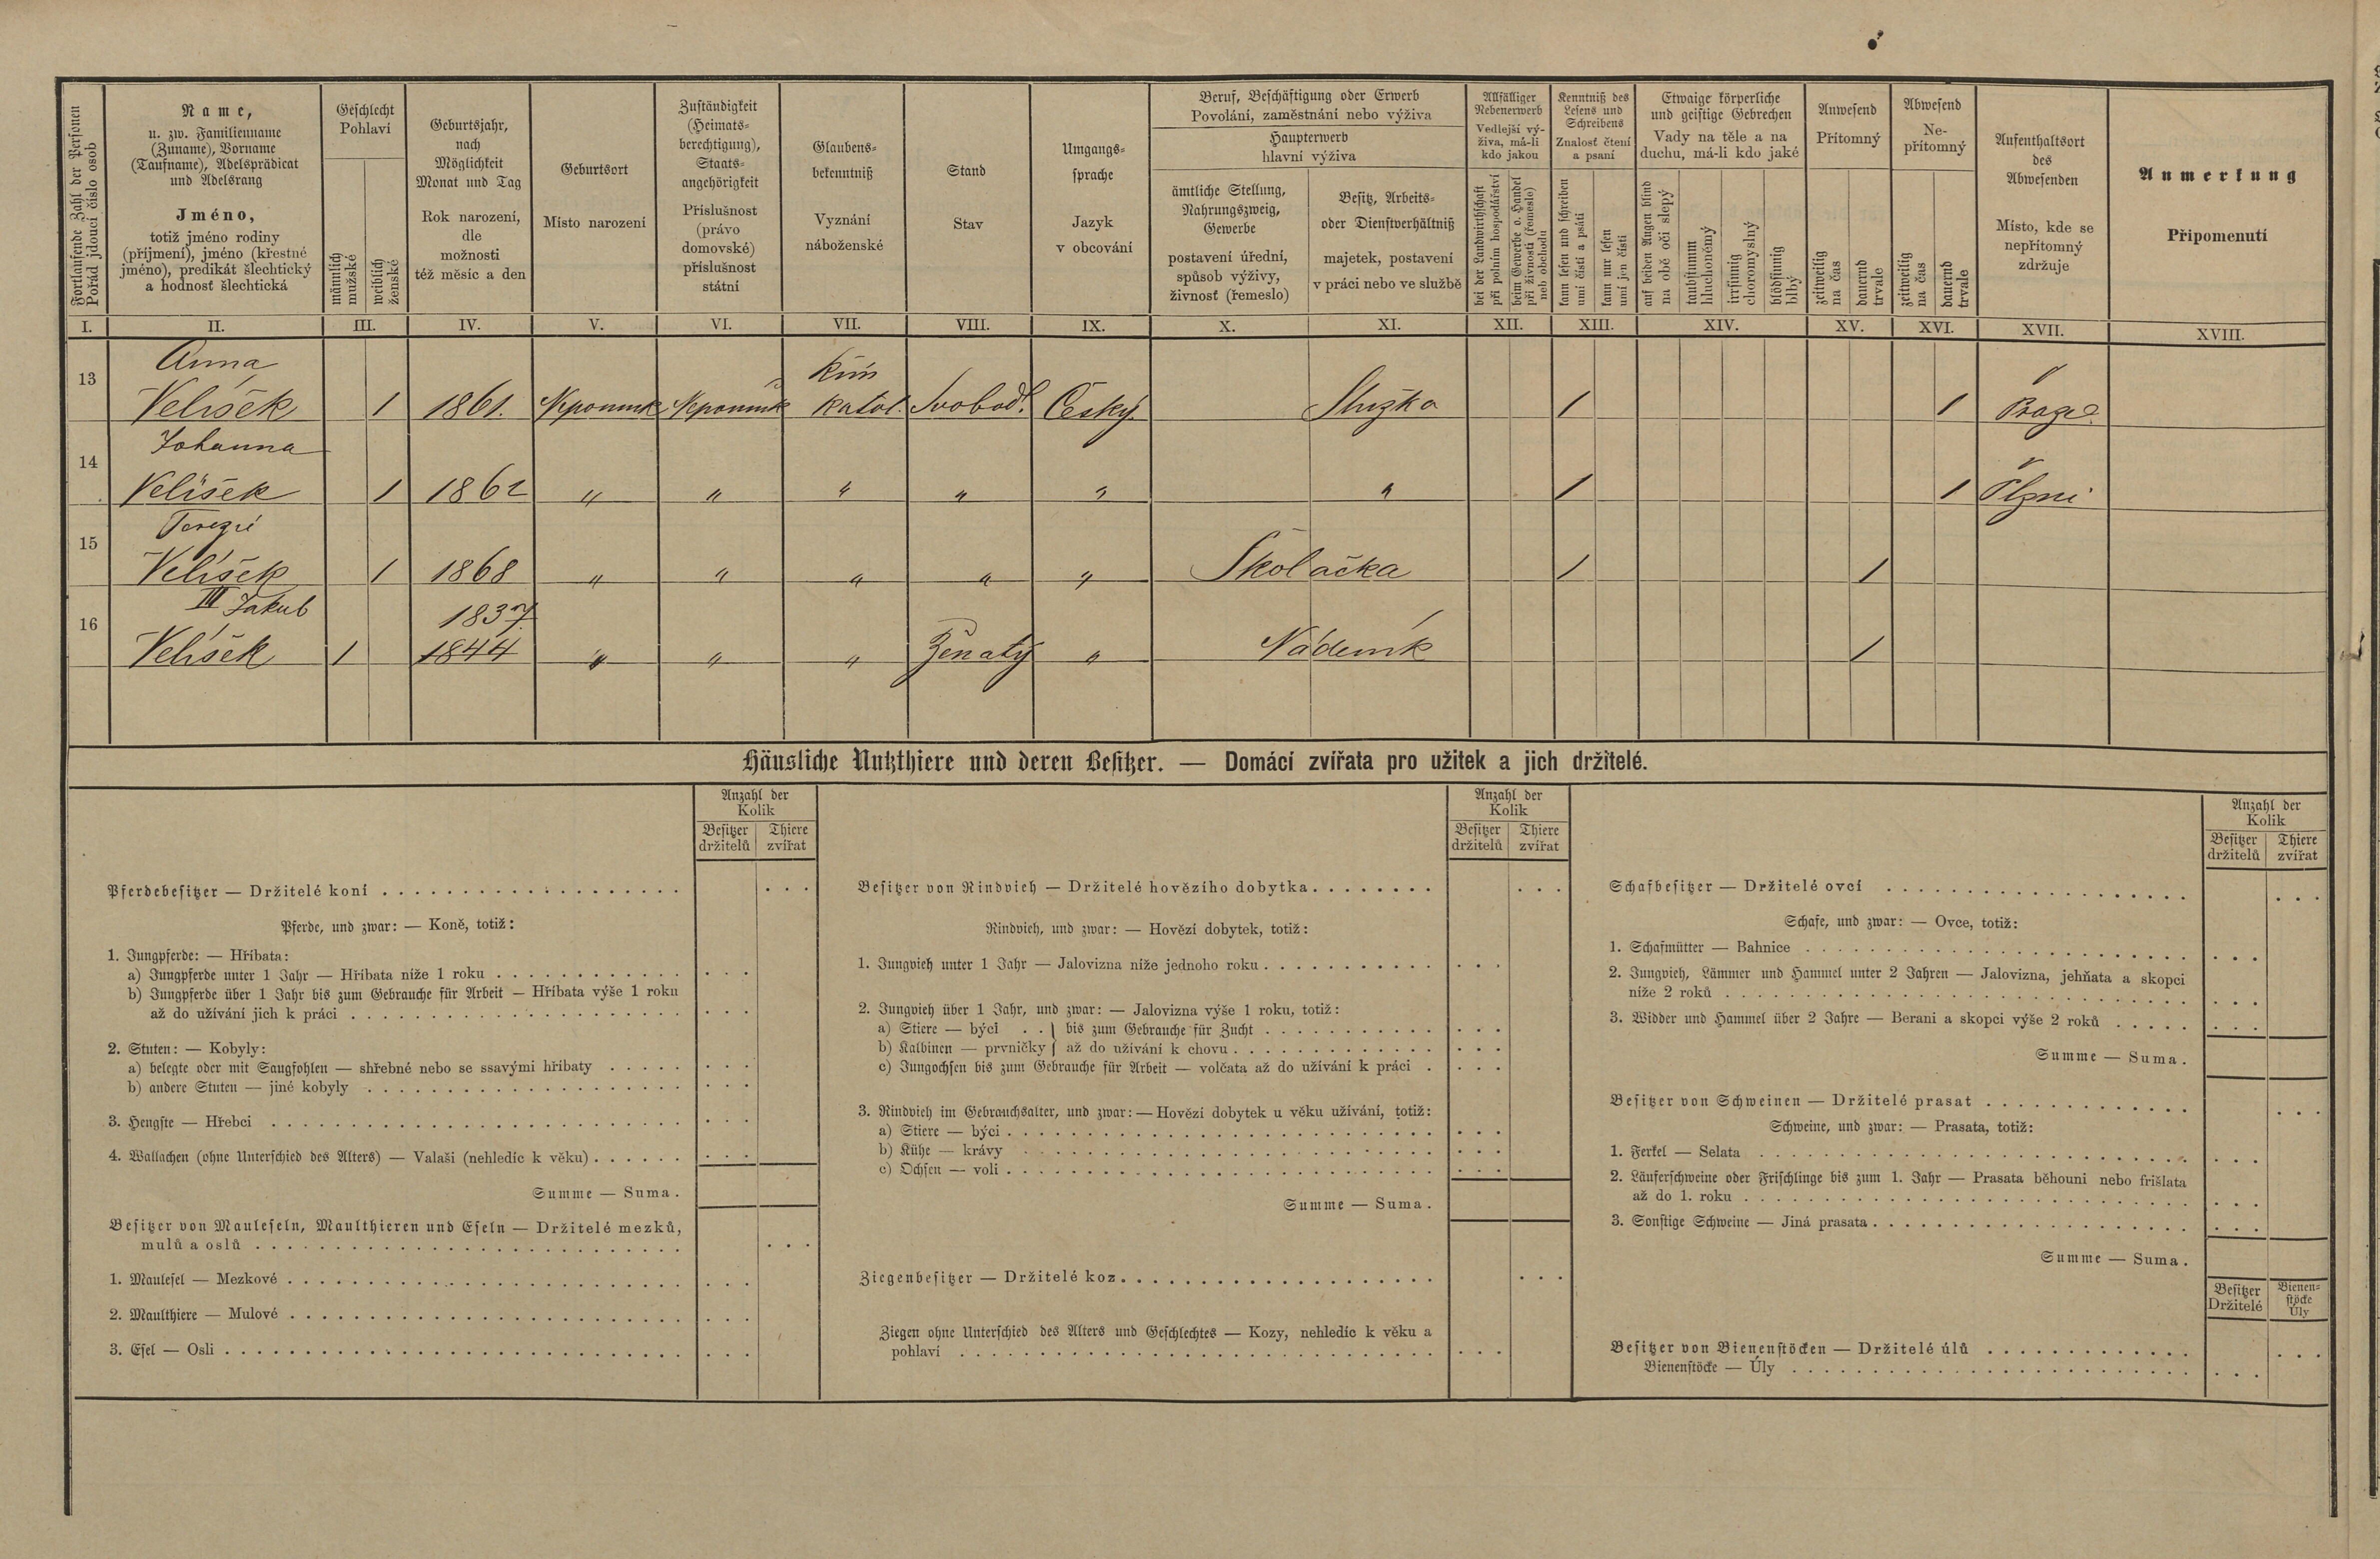 Fortlaufende Zahl der Personen
Pořád jdoucí číslo osob
Name,
u. zw. Familienname
(Zuname), Vorname
(Taufname), Adelsprädicat
und Adelsrang
Jméno,
totiž jméno rodiny
(příjmení), jméno (křestné
jméno), predikát šlechtický
a hodnost šlechtická
Geschlecht
Pohlaví
männlich
mužské
weiblich
ženské
Geburtsjahr,
nach
Möglichkeit
Monat und Tag
Rok narození,
dle
možnosti
též měsíc a den
Geburtsort
Místo narození
Zuständigkeit
(Heimats-
berechtigung),
Staats-
angehörigkeit
Příslušnost
(právo
domovské)
příslušnost
státní
Glaubens-
bekenntniß
Vyznání
náboženské
Stand
Stav
Umgangs-
sprache
Jazyk
v obcování
Beruf, Beschäftigung oder Erwerb
Povolání, zaměstnání nebo výživa
Haupterwerb
hlavní výživa
ämtliche Stellung,
Nahrungszweig,
Gewerbe
postavení úřední,
spůsob výživy,
živnosť (řemeslo)
Besitz, Arbeits-
oder Dienstverhältniß
majetek, postavení
v práci nebo ve službě
Allfälliger
Nebenerwerb
Vedlejší vý-
živa, má-li
kdo jakou
bei der Landwirthschaft
při polním hospodářství
beim Gewerbe o. Handel
při živnosti (řemeslo)
neb obchodu
Kenntniß des
Lesens und
Schreibens
Znalosť čtení
a psaní
kann lesen und schreiben
umí čísti a psáti
kann nur lesen
umí jen čísti
Etwaige körperliche
und geistige Gebrechen
Vady na těle a na
duchu, má-li kdo jaké
auf beiden Augen blind
na obě oči slepý
taubstumm
hluchoněmý
irrsinnig
choromyslný
blödsinnig
blbý
Anwesend
Přítomný
zeitweilig
na čas
dauernd
trvale
Abwesend
Ne-
přítomný
zeitweilig
na čas
dauernd
trvale
Aufenthaltsort
des
Abwesenden
Místo, kde se
nepřítomný
zdržuje
Anmerkung
Připomenutí
I. II. III. IV. V. VI. VII. VIII. IX. X. XI. XII. XIII. XIV. XV. XVI. XVII. XVIII.
Anna
13 Řím
Velíšek 1 1861. Nepomuk Nepomuk katol. Svobod. Český Služka 1 1 v Praze
Johanna
14
Velíšek 1 1862 " " " " " " 1 1 v Plzni
Terezie
15
Velíšek 1 1868 " " " " " Školačka 1 1
III Jakub
16 1837
Velíšek 1 1844 " " " Ženatý " Nádeník 1
Häusliche Nutzthiere und deren Besitzer. — Domácí zvířata pro užitek a jich držitelé.
Anzahl der
Kolik
Besitzer Thiere
držitelů zvířat
Pferdebesitzer — Držitelé koní
Pferde, und zwar: — Koně, totiž:
1. Jungpferde: — Hříbata:
a) Jungpferde unter 1 Jahr — Hříbata níže 1 roku
b) Jungpferde über 1 Jahr bis zum Gebrauche für Arbeit — Hříbata výše 1 roku
až do užívání jich k práci
2. Stuten: — Kobyly:
a) belegte oder mit Saugfohlen — shřebné nebo se ssavými hříbaty
b) andere Stuten — jiné kobyly
3. Hengste — Hřebci
4. Wallachen (ohne Unterschied des Alters) — Valaši (nehledíc k věku)
Summe — Suma.
Besitzer von Mauleseln, Maulthieren und Eseln — Držitelé mezků,
mulů a oslů
1. Maulesel — Mezkové
2. Maulthiere — Mulové
3. Esel — Osli
Anzahl der
Kolik
Besitzer Thiere
držitelů zvířat
Besitzer von Rindvieh — Držitelé hovězího dobytka
Rindvieh, und zwar: — Hovězí dobytek, totiž:
1. Jungvieh unter 1 Jahr — Jalovizna níže jednoho roku
2. Jungvieh über 1 Jahr, und zwar: — Jalovizna výše 1 roku, totiž:
a) Stiere — býci . . } bis zum Gebrauche für Zucht
b) Kalbinen — prvničky } až do užívání k chovu
c) Jungochsen bis zum Gebrauche für Arbeit — volčata až do užívání k práci
3. Rindvieh im Gebrauchsalter, und zwar: — Hovězí dobytek u věku užívání, totiž:
a) Stiere — býci
b) Kühe — krávy
c) Ochsen — voli
Summe — Suma.
Ziegenbesitzer — Držitelé koz
Ziegen ohne Unterschied des Alters und Geschlechtes — Kozy, nehledíc k věku a
pohlaví
Anzahl der
Kolik
Besitzer Thiere
držitelů zvířat
Schafbesitzer — Držitelé ovcí
Schafe, und zwar: — Ovce, totiž:
1. Schafmütter — Bahnice
2. Jungvieh, Lämmer und Hammel unter 2 Jahren — Jalovizna, jehňata a skopci
níže 2 roků
3. Widder und Hammel über 2 Jahre — Berani a skopci výše 2 roků
Summe — Suma.
Besitzer von Schweinen — Držitelé prasat
Schweine, und zwar: — Prasata, totiž:
1. Ferkel — Selata
2. Läuferschweine oder Frischlinge bis zum 1. Jahr — Prasata běhouni nebo frišlata
až do 1. roku
3. Sonstige Schweine — Jiná prasata
Summe — Suma.
Besitzer Bienen-
Držitelé stöcke
Úly
Besitzer von Bienenstöcken — Držitelé úlů
Bienenstöcke — Úly